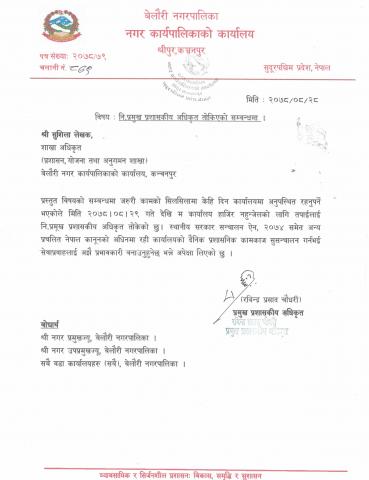 बेलौरी नगरपालिका
नगर कार्यपालिकाको कार्यालय
श्रीपुर,कञ्चनपुर
पत्र संख्याः २०७८/७९
चलानी नं. ८६९
सुदूरपश्चिम प्रदेश, नेपाल
मिति : २०७८/०८/२८
विषय : नि.प्रमुख प्रशासकीय अधिकृत तोकिएको सम्बन्धमा ।
श्री सुशिला लेखक,
शाखा अधिकृत
(प्रशासन,योजना तथा अनुगमन शाखा)
बेलौरी नगर कार्यपालिकाको कार्यालय, कन्चनपुर
प्रस्तुत विषयको सम्बन्धमा जरुरी कामको सिलसिलामा केहि दिन कार्यालयमा अनुपस्थित रहनुपर्ने
भएकोले मिति २०७८।०८।२९ गते देखि म कार्यालय हाजिर नहुन्जेलको लागि तपाईलाई
नि.प्रमुख प्रशासकीय अधिकृत तोकेको छु । स्थानीय सरकार सन्चालन ऐन, २०७४ समेत अन्य
प्रचलित नेपाल कानूनको अधिनमा रही कार्यालयको दैनिक प्रशासनिक कामकाज सुसन्चालन गर्नभई
सेवाप्रवाहलाई अझै प्रभावकारी बनाउनुहुनेछ भन्ने अपेक्षा लिएको छु ।
(रविन्द्र प्रसाद चौधरी)
प्रमुख प्रशासकीय अधिकृत
बोधार्थ
श्री नगर प्रमुखज्यू, बेलौरी नगरपालिका ।
श्री नगर उपप्रमुखज्यू, बेलौरी नगरपालिका ।
सबै वडा कार्यालयहरु (सबै), बेलौरी नगरपालिका ।
व्यावसायिक र सिर्जनशील प्रशासनः विकास, समृद्धि र सुशासन